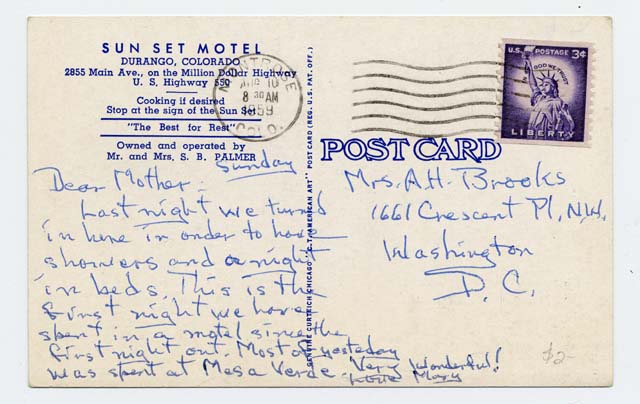 SUN SET MOTEL
DURANGO, COLORADO
2855 Main Ave., on the Million Dollar Highway
U. S. Highway 550
Cooking if desired
Stop at the sign of the Sun Set
"The Best for Rest"
Owned and operated by
Mr. and Mrs. S. B. PALMER
MONTROSE
AUG 10
8 30 AM
1959
COLO.
U.S. POSTAGE 3¢
IN GOD WE TRUST
LIBERTY
POST CARD
GENUINE CURTEICH-CHICAGO "C.T. AMERICAN ART" POST CARD (REG. U.S. PAT. OFF.)
Sunday
Dear Mother -
Last night we turned
in here in order to have
showers and a night
in beds. This is the
first night we have
spent in a motel since the
first night out. Most of yesteday
was spent at Mesa Verde. Very Wonderful!
Love Mary
Mrs. A.H. Brooks
1661 Crescent Pl. N.W.
Washington
D.C.
$2-